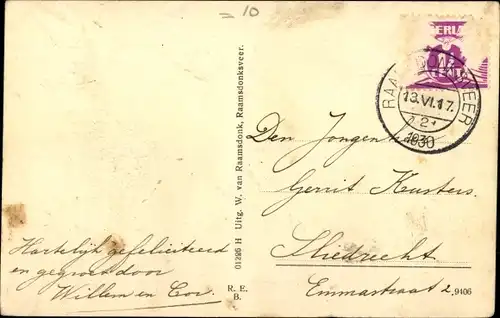 = 10
ERL
1½
CENT
RAAMSDONKSVEER
13.VI.17.
1930
Den Jongenheer
Gerrit Kusters.
Sliedrecht
Emmastraat 2.
9406
01295 H Uitg. W. van Raamsdonk, Raamsdonksveer.
R. E.
B.
Hartelijk gefeliciteerd
en gegroet door
Willem en Cor.